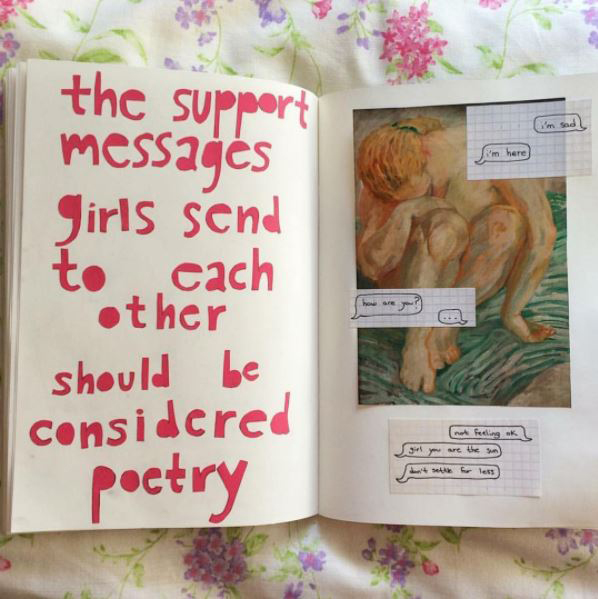 the support
messages
girls send
to each
other
should be
considered
poetry
i'm sad
i'm here
how are you?
...
not feeling ok
girl you are the sun
don't settle for less